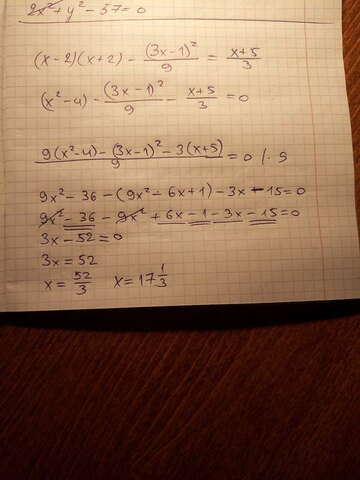 2x² + y² - 57 = 0
(x-2)(x+2) - (3x-1)²/9 = x+5/3
(x²-4) - (3x-1)²/9 - x+5/3 = 0
9(x²-4) - (3x-1)² - 3(x+5)/9 = 0 /· 9
9x² - 36 - (9x² - 6x + 1) - 3x - 15 = 0
9x² - 36 - 9x² + 6x - 1 - 3x - 15 = 0
3x - 52 = 0
3x = 52
x = 52/3 x = 17 1/3